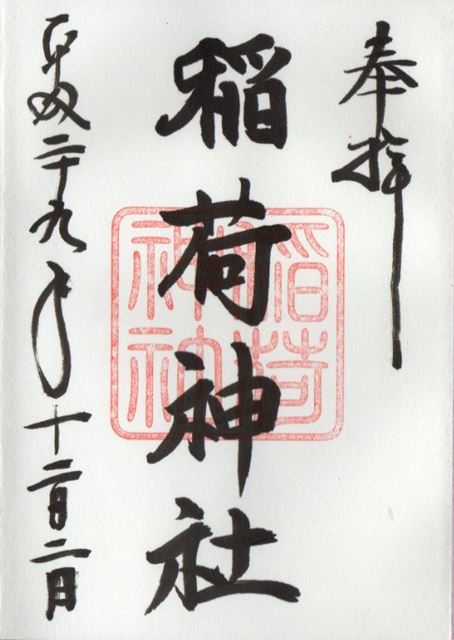 奉拝
稲荷神社
平成二十九年十二月二日
稲荷
神社